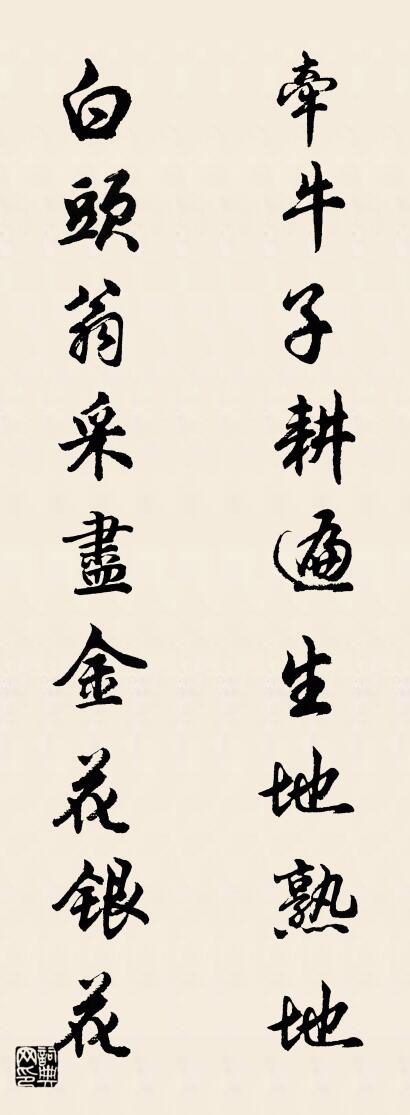 牽牛子耕遍生地熟地
白頭翁采盡金花銀花
詞典網印